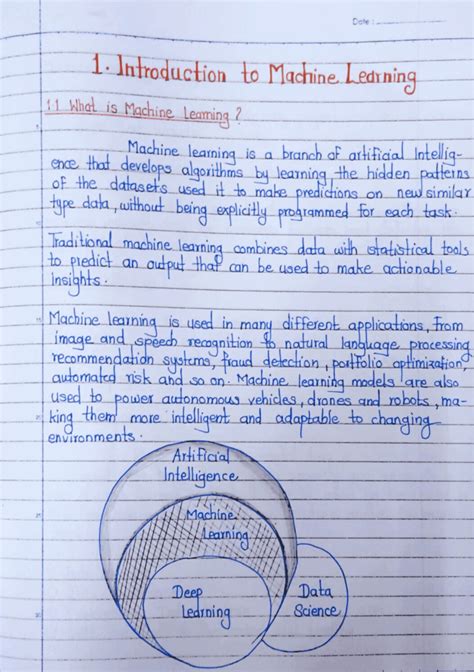 Date :
1. Introduction to Machine Learning
1.1 What is Machine Learning ?
Machine learning is a branch of artificial Intellig-
ence that develops algorithms by learning the hidden patterns
of the datasets used it to make predictions on new similar
type data, without being explicitly programmed for each task.
Traditional machine learning combines data with statistical tools
to predict an output that can be used to make actionable
Insights.
Machine learning is used in many different applications, from
image and speech recognition to natural language processing
recommendation systems, fraud detection, portfolio optimization,
automated risk and so on. Machine learning models are also
used to power autonomous vehicles, drones and robots, ma-
king them more intelligent and adaptable to changing
environments.
Artificial
Intelligence
Machine
Learning
Deep
Learning
Data
Science